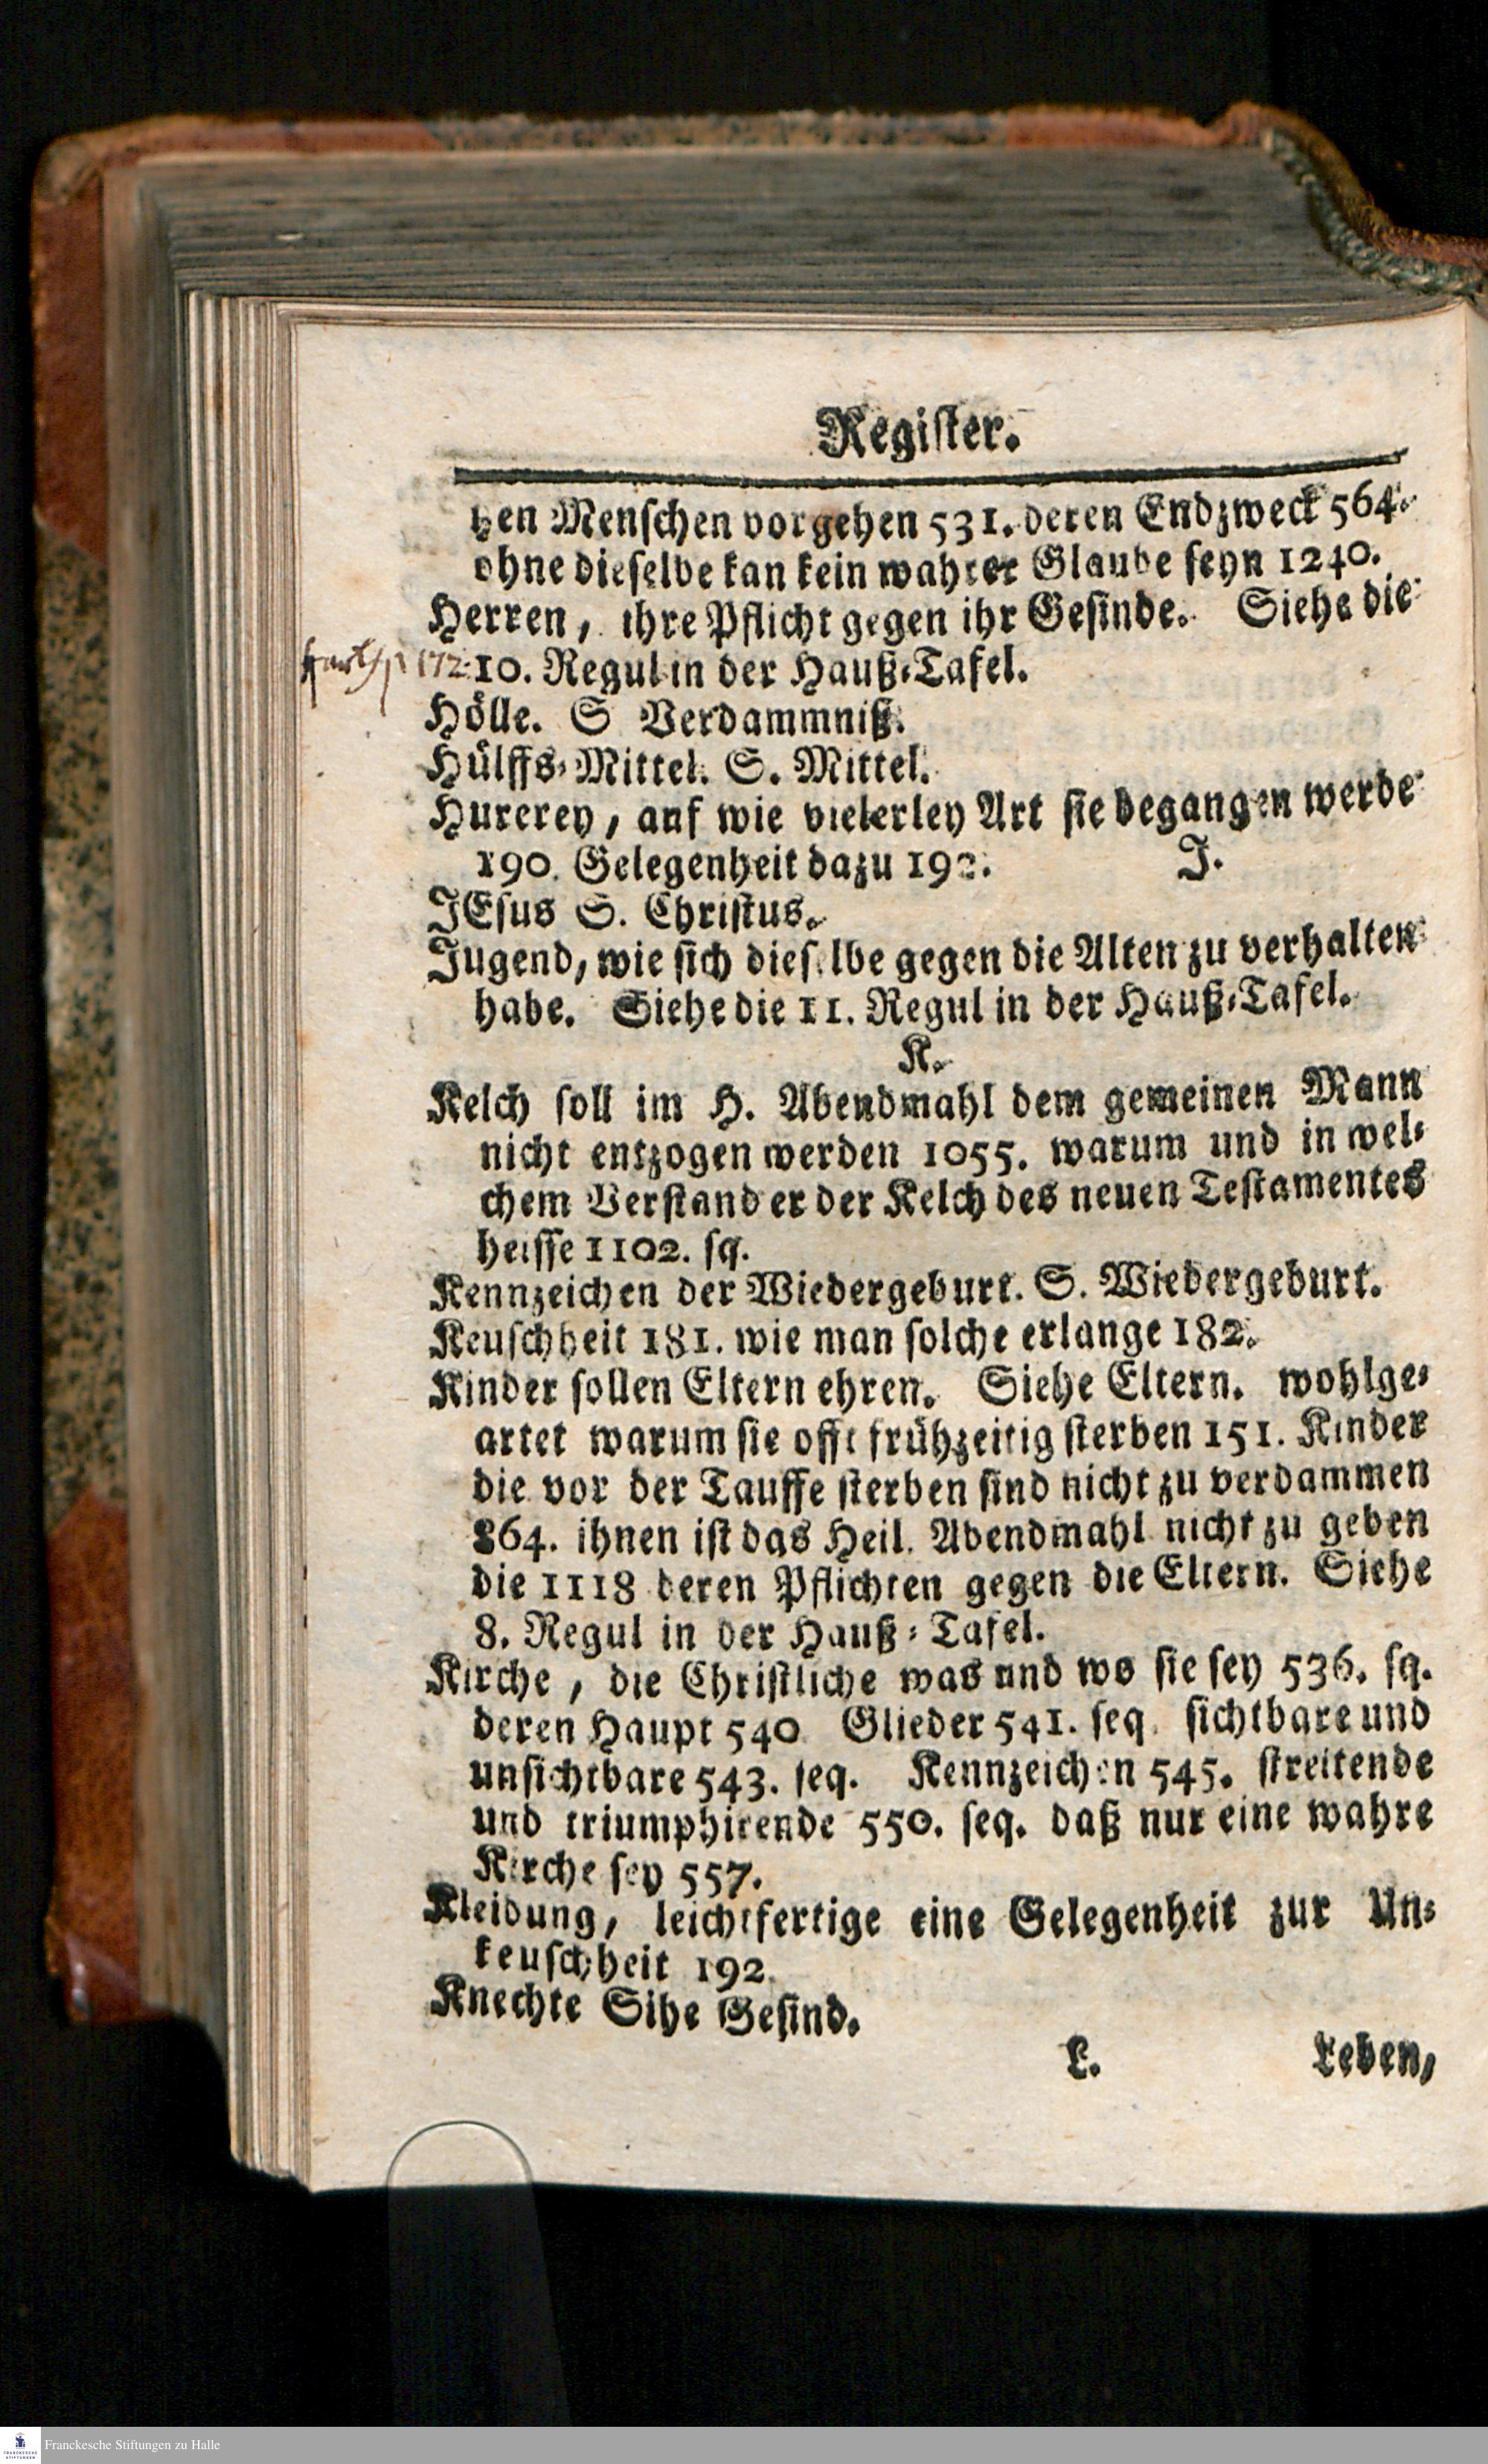 Register.
tzen Menschen vorgehen 531. deren Endzweck 564.
ohne dieselbe kan kein wahrer Glaube seyn 1240.
Herren, ihre Pflicht gegen ihr Gesinde. Siehe die
172. 10. Regul in der Hauß-Tafel.
Hölle. S Verdammniß.
Hülffs-Mittel. S. Mittel.
Hurerey, auf wie vielerley Art sie begangen werde
190. Gelegenheit dazu 192. J.
JEsus S. Christus.
Jugend, wie sich dieselbe gegen die Alten zu verhalten
habe. Siehe die 11. Regul in der Hauß-Tafel.
K.
Kelch soll im H. Abendmahl dem gemeinen Mann
nicht entzogen werden 1055. warum und in wel-
chem Verstand er der Kelch des neuen Testamentes
heisse 1102. sq.
Kennzeichen der Wiedergeburt. S. Wiedergeburt.
Keuschheit 181. wie man solche erlange 182.
Kinder sollen Eltern ehren. Siehe Eltern. wohlge-
artet warum sie offt frühzeitig sterben 151. Kinder
die vor der Tauffe sterben sind nicht zu verdammen
864. ihnen ist das Heil. Abendmahl nicht zu geben
die 1118 deren Pflichten gegen die Eltern. Siehe
8. Regul in der Hauß-Tafel.
Kirche, die Christliche was und wo sie sey 536. sq.
deren Haupt 540 Glieder 541. seq. sichtbare und
unsichtbare 543. seq. Kennzeichen 545. streitende
und triumphirende 550. seq. daß nur eine wahre
Kirche sey 557.
Kleidung, leichtfertige eine Gelegenheit zur Un-
keuschheit 192.
Knechte Sihe Gesind.
L. Leben,
Franckesche Stiftungen zu Halle